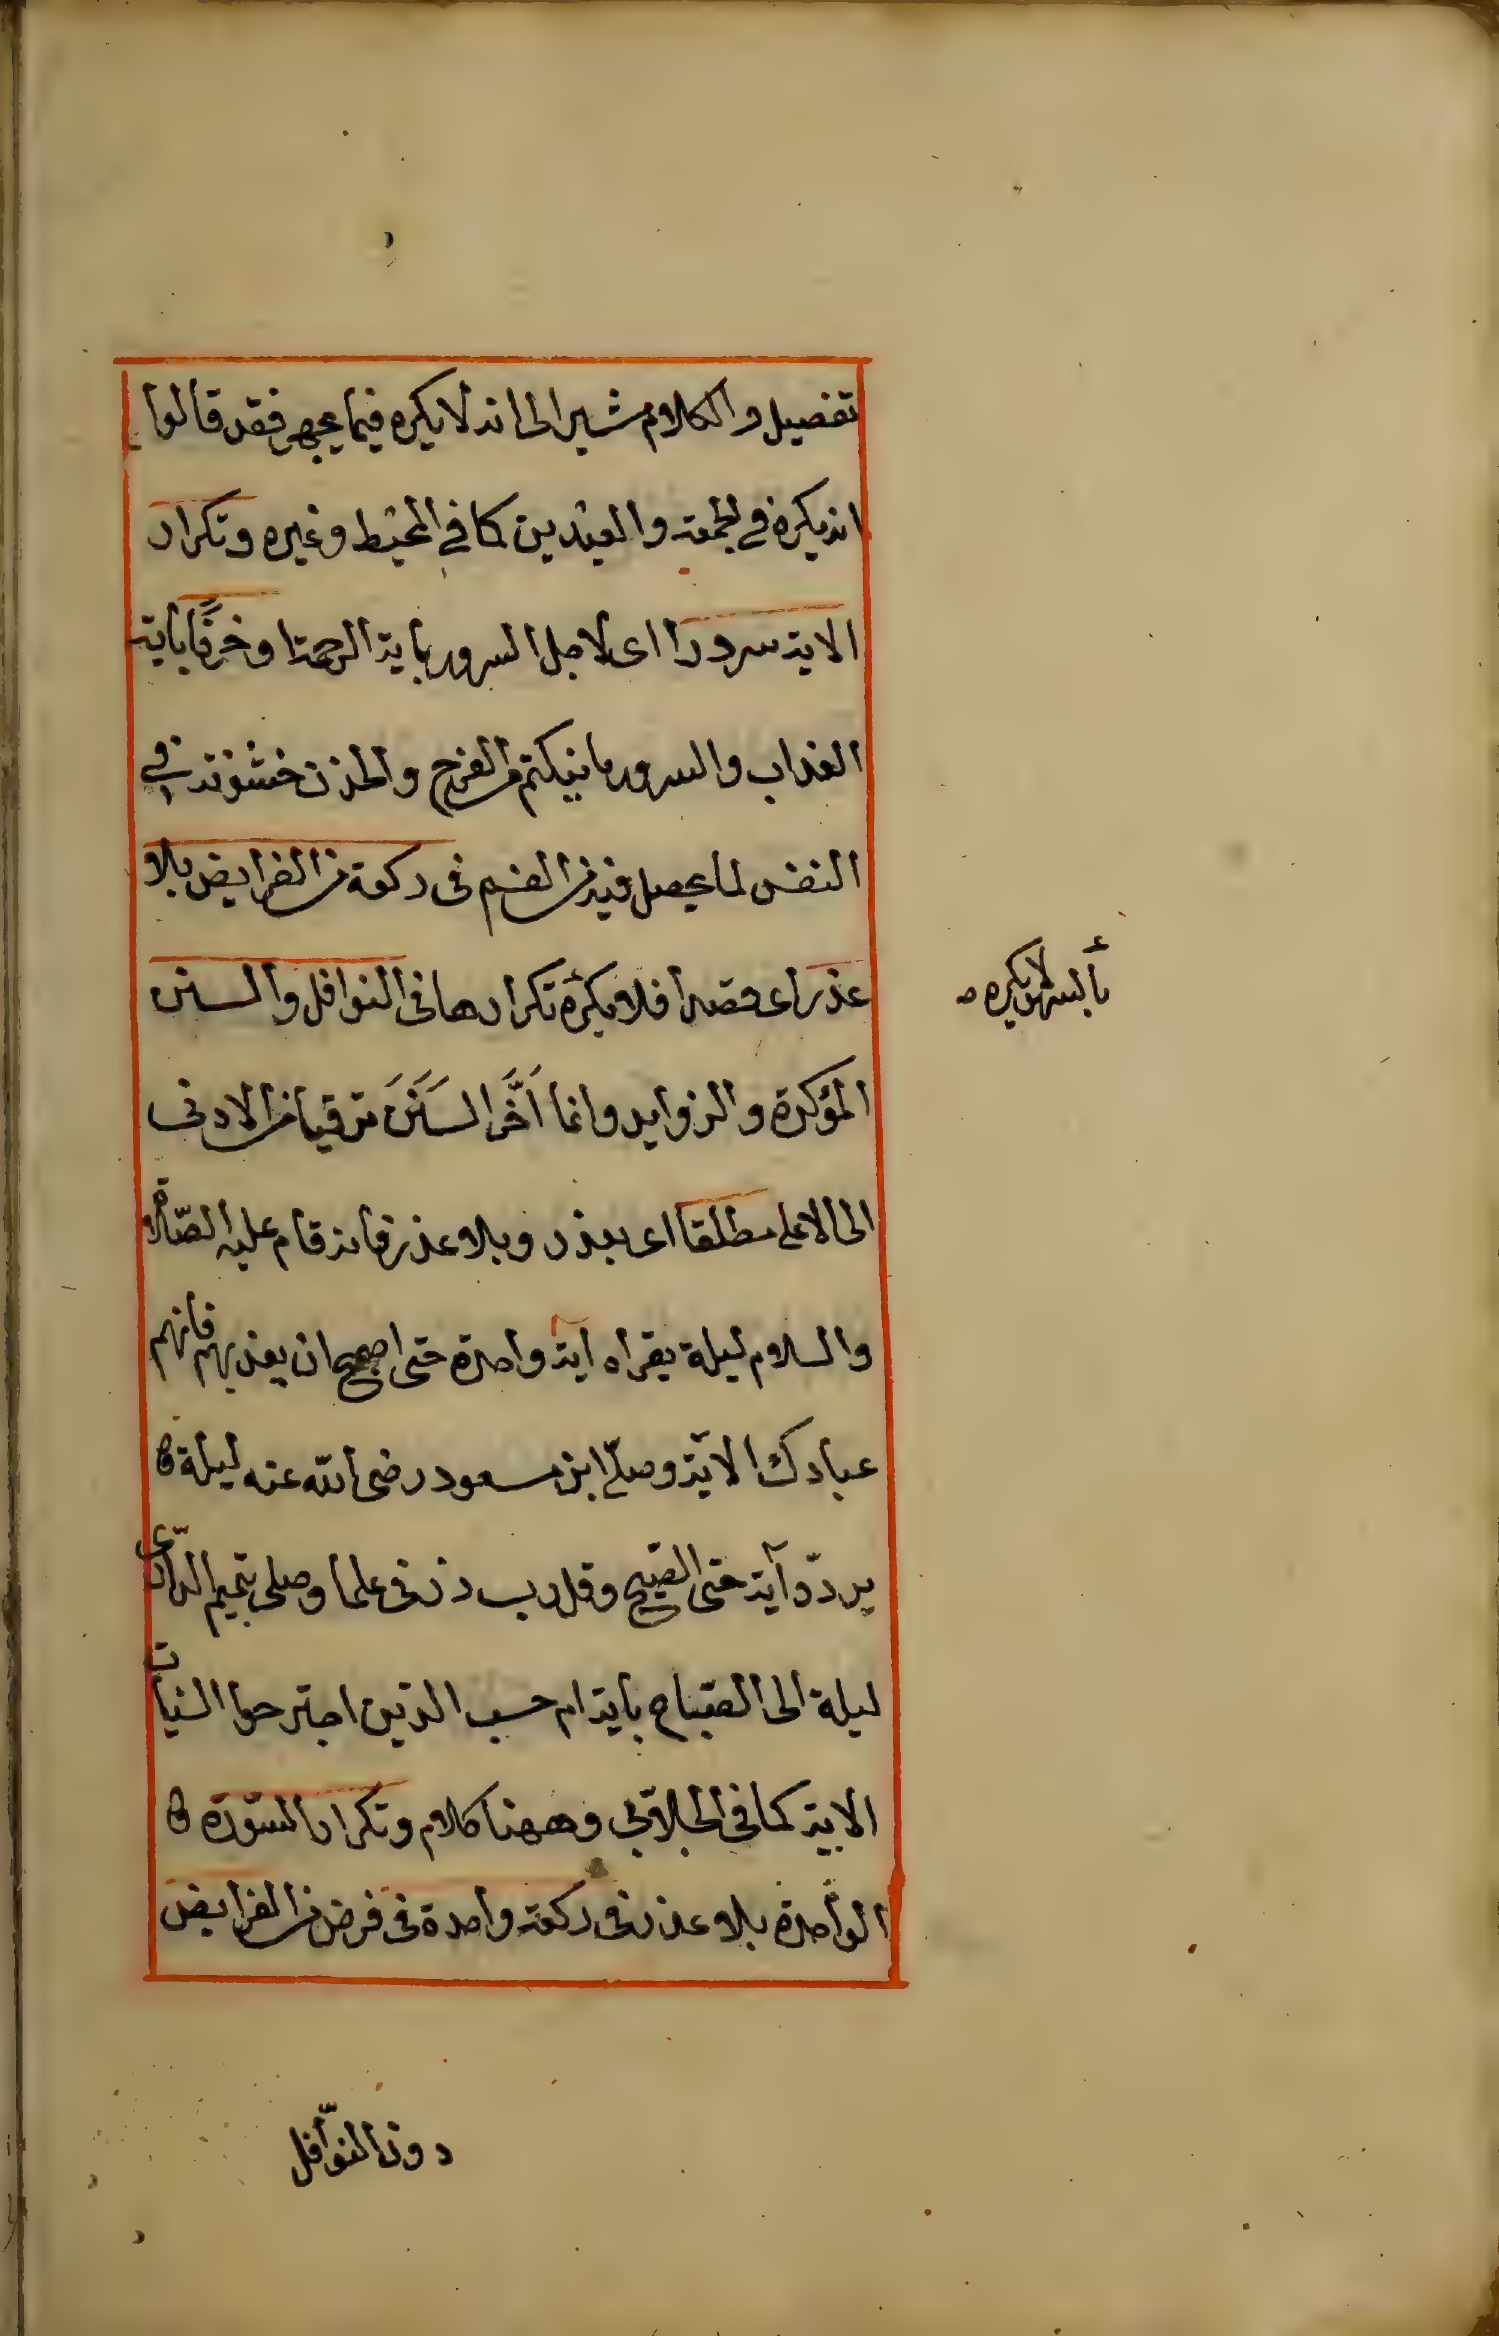 تفصيل والكلام مشير الى انه لا يكره فيما يجهر فقد قالوا
انه يكره في الجمعة والعيدين كما في المحيط وغيره وتكرار
الاية سرورا اى لاجل السرور باية الرحمة او حزنا باية
العذاب والسرور ما ينكتم من الفرح والحزن خشونة في
النفس لما يحصل فيه من الغم فى ركعة من الفرايض بلا
عذر اى قصدا فلا يكره تكرارها فى النوافل والسنن
المؤكدة والزوايد وانما اَخَّر السَنَنَ ترقيا من الادنى
الى الاعلى مطلقا اى بعذر وبلا عذر فانه قام عليه الصّلاة
والسلام ليلة يقراه اية واحدة حتى اصبح ان يعذبهم فانهم
عبادك الآية وصلّى ابن مسعود رضى الله عنه ليلة
يردّد آية حتى الصّبح وقل رب زدنى علما وصلى تميم الدارّى
ليلة الى الصّباح باية ام حسب الذين اجترحوا السّيأت
الاية كما فى الجلابّى وههنا كلام وتكرار السّورة
الواحدة بلا عذر فى ركعة واحدة فى فرض من الفرايض
بالسهو لا يكره
دون النّوافل